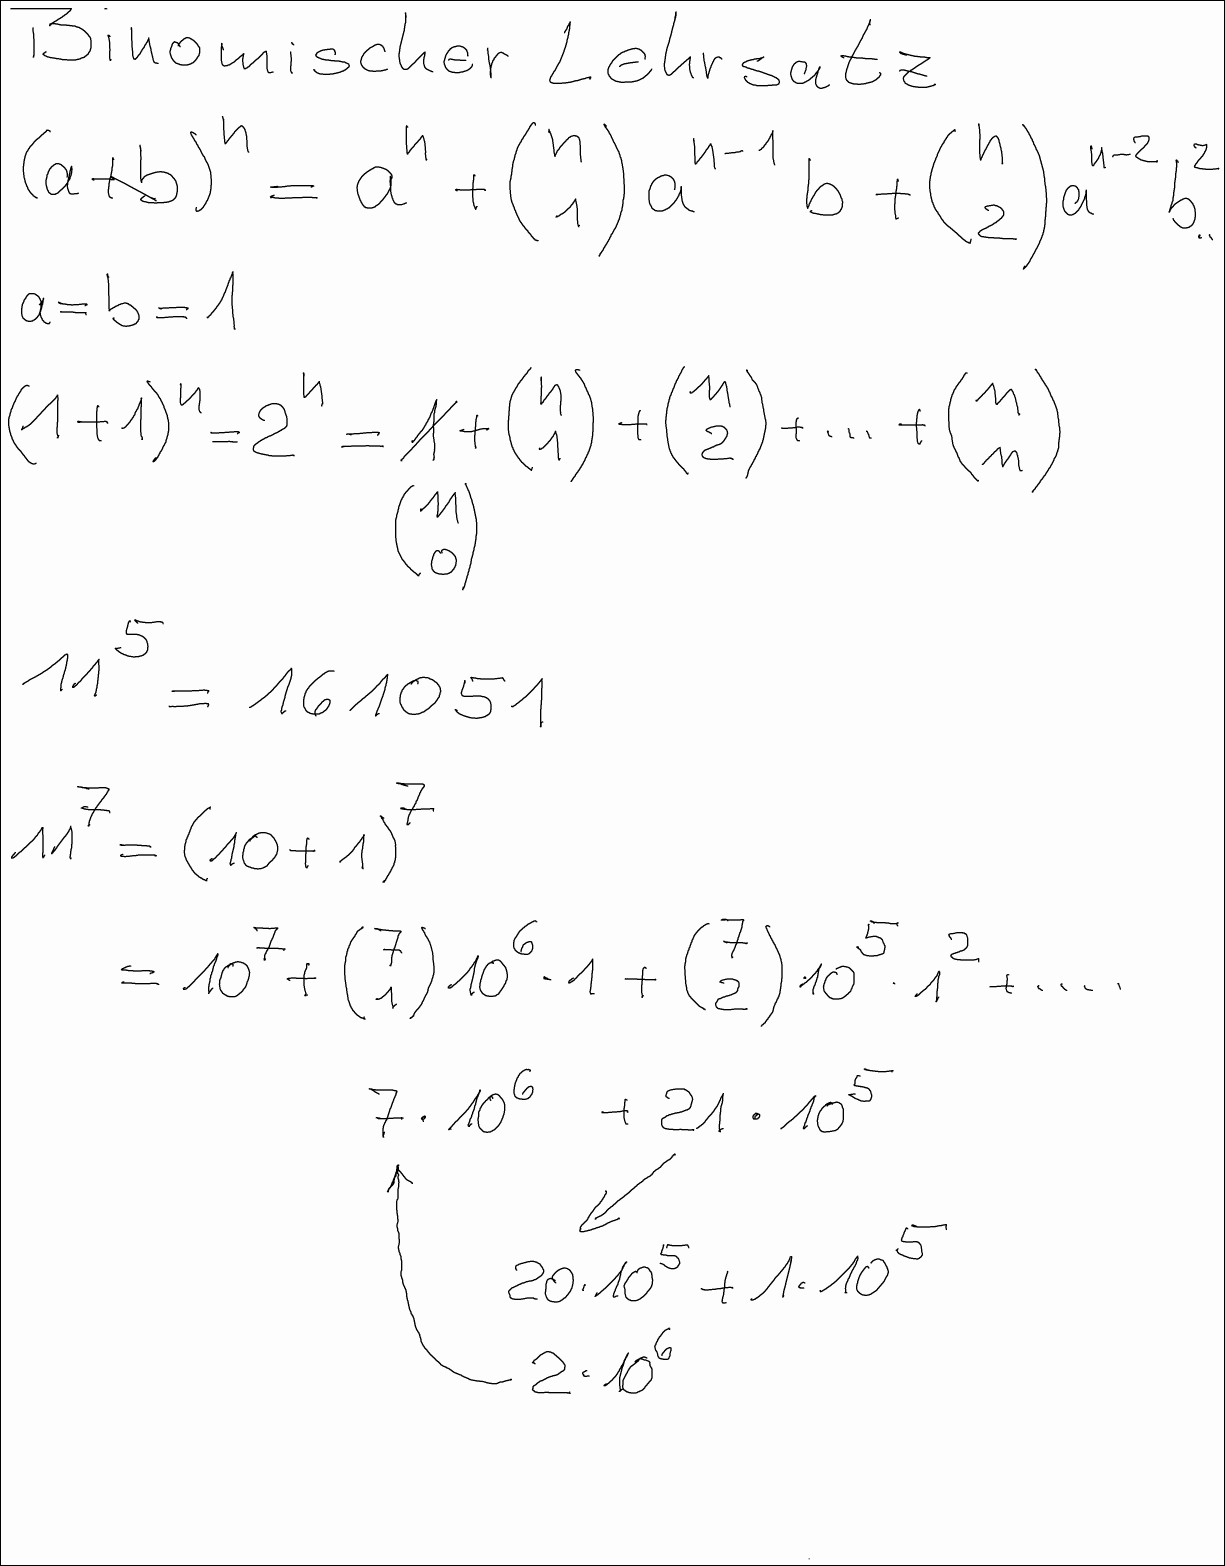 Binomischer Lehrsatz
(a+b)^n = a^n + (n 1) a^(n-1) b + (n 2) a^(n-2) b^2 ..
a = b = 1
(1+1)^n = 2^n = 1 + (n 1) + (n 2) + ... + (n n)
(n 0)
11^5 = 161051
11^7 = (10+1)^7
= 10^7 + (7 1) 10^6 · 1 + (7 2) · 10^5 · 1^2 + .....
7 · 10^6 + 21 · 10^5
20 · 10^5 + 1 · 10^5
2 · 10^6